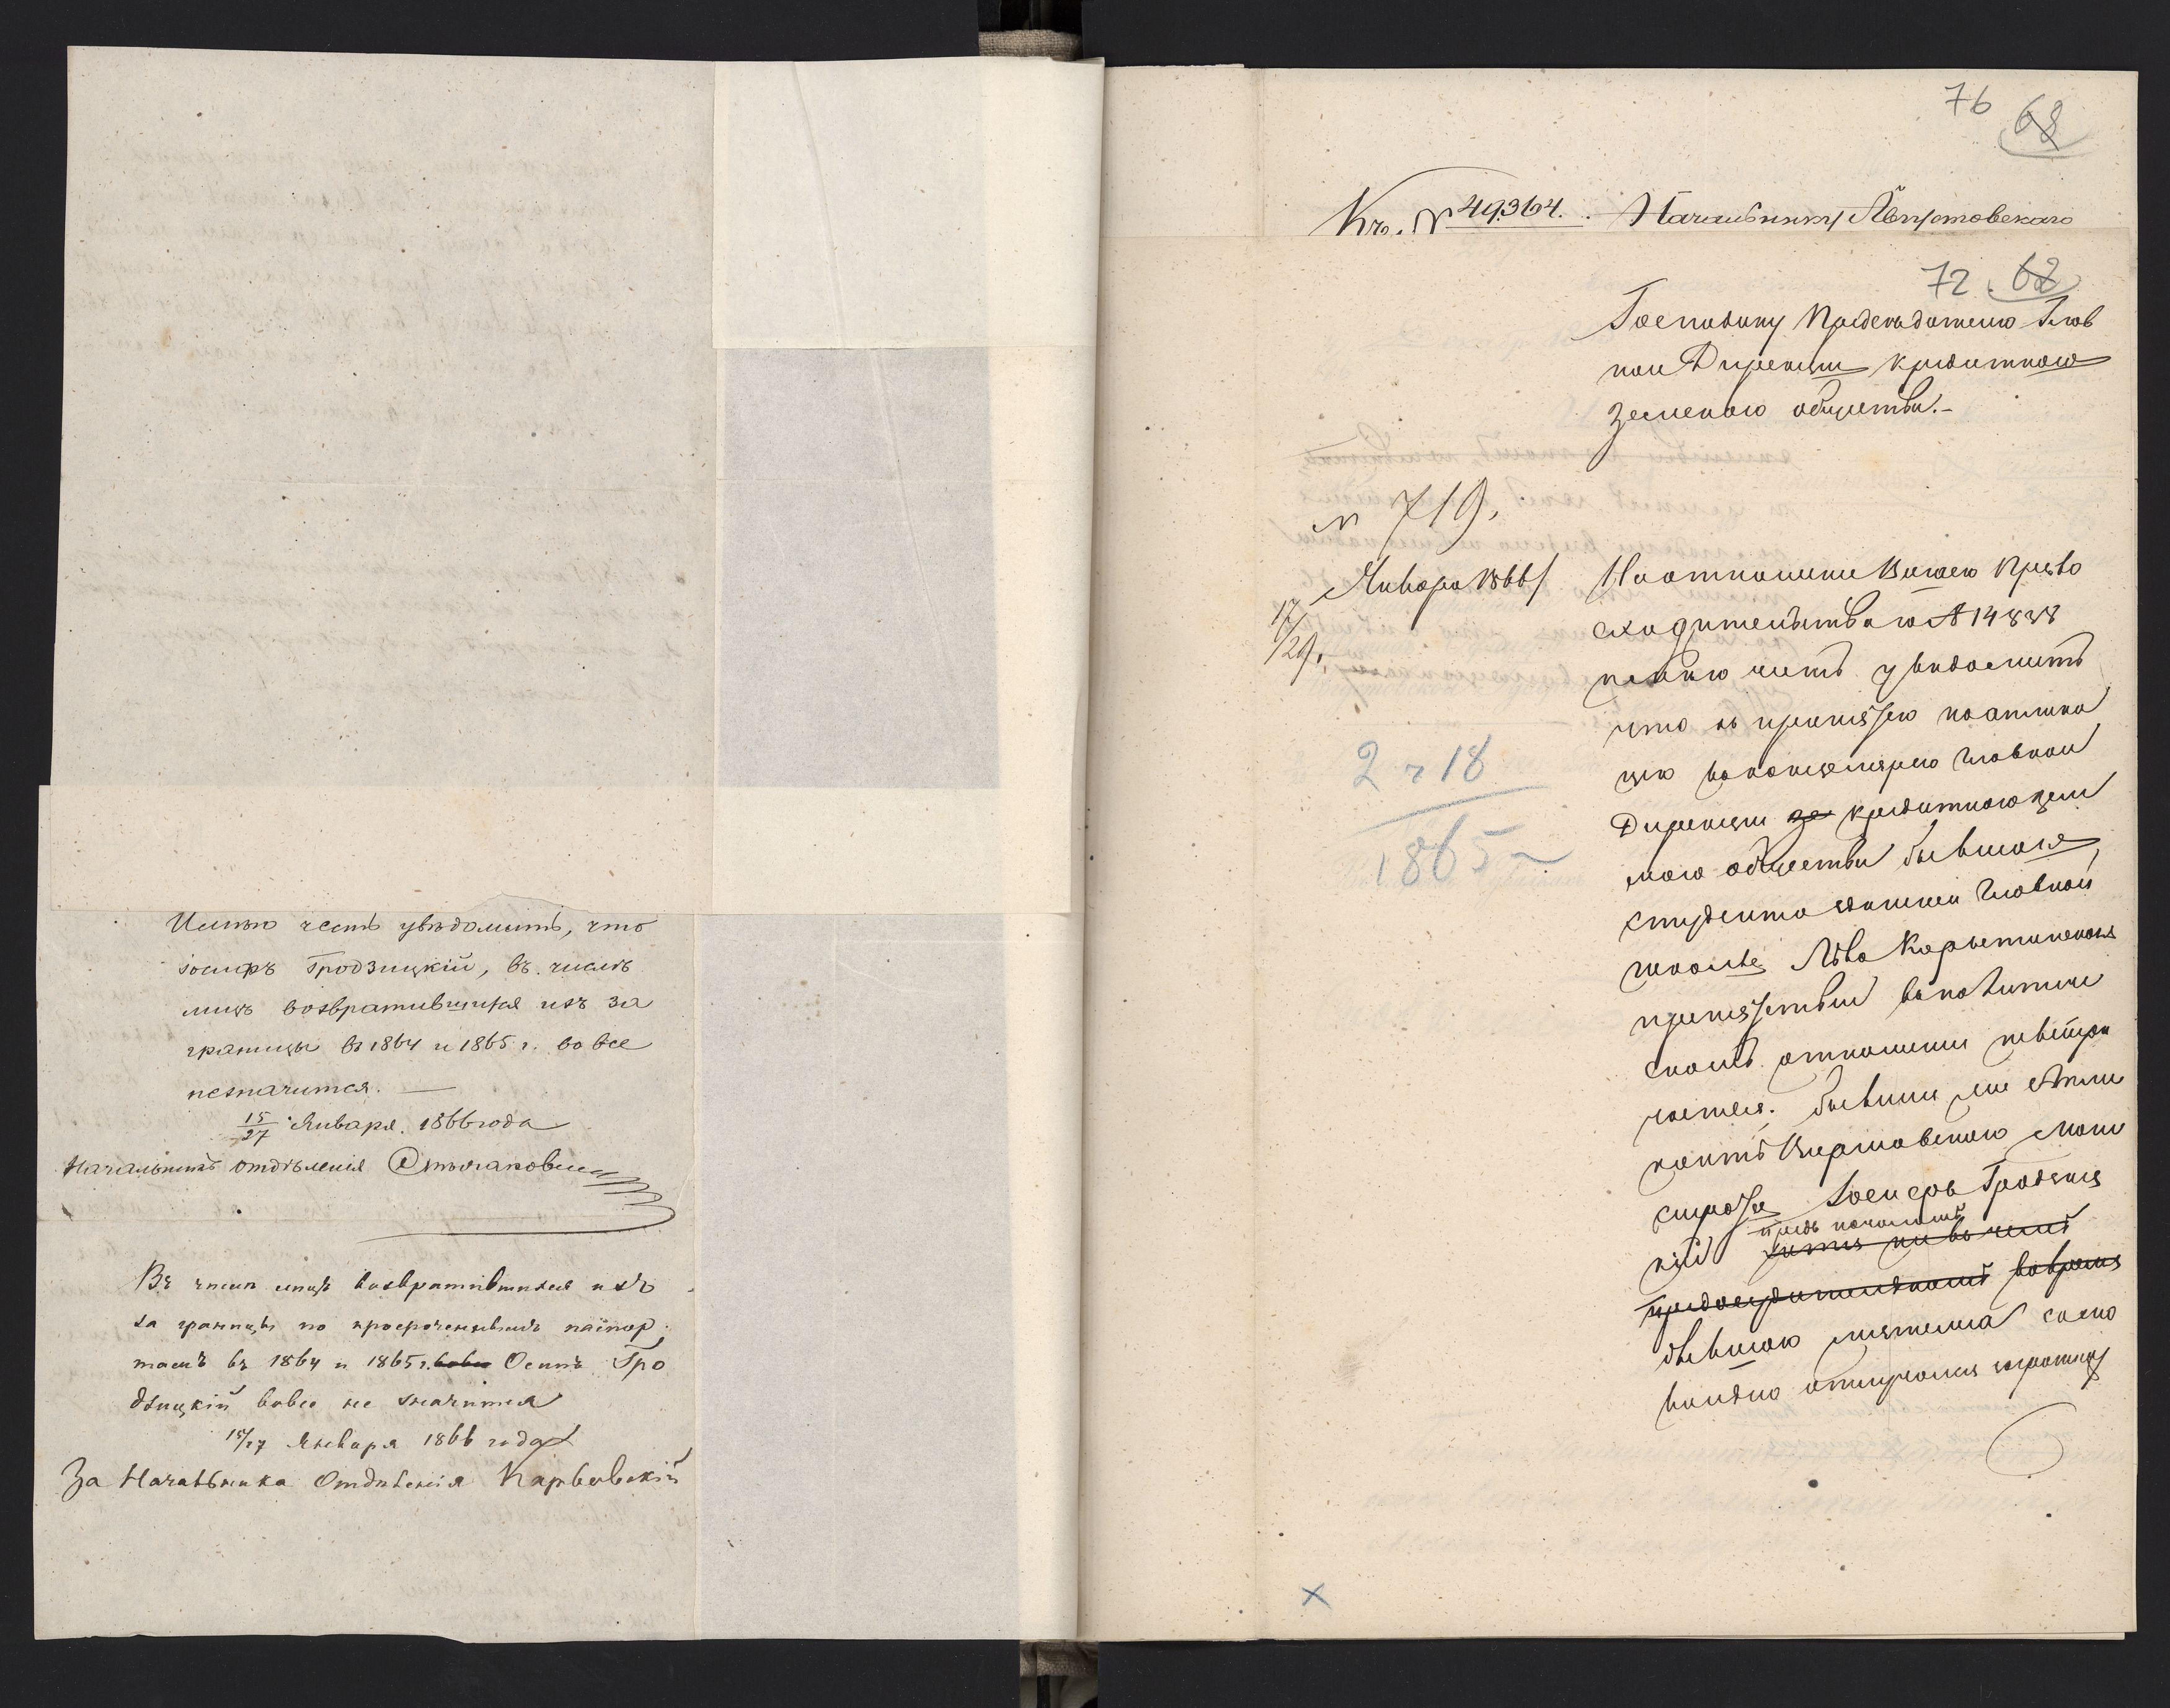 Имѣю честь увѣдомить, что
Іосифъ Гродзицкій, въ числѣ
лицъ возвратившихся изъ за
границы въ 1864 и 1865 г. вовсе
незначится. —
15/27 Января 1866 года
Начальникъ отдѣленія
Въ числѣ лицъ возвратившихся изъ
за границы по просроченнымъ паспор
тамъ въ 1864 и 1865 г. вовсе Осипъ Гро
дзицкій вовсе не значится
15/27 Января 1866 года
За Начальника Отдѣленія Карвовскій
76 68
№ 49364. Начальнику Августовскаго
72 62
Господину Предсѣдателю Глав
ной Дирекціи кредитнаго
Земскаго общества.-
№ 719.
Января 1866
17/29.
На отношеніе Вашего Прево
сходительства за № 14838
имѣю честь увѣдомить
что къ принятію
въ канцелярію Главной
Дирекціи зе кредитнаго зем
скаго общества бывшаго
студента здѣшней Главной
школы Льва
препятствій въ политиче
скомъ отношеніи невстрѣ
чается; бывшій же
кантъ Варшавскаго Маги
страта Іосифъ Гродзиц
кій предъ началомъ
бывшаго мятежа само
вольно отлучился заграницу
2 r 18
1865